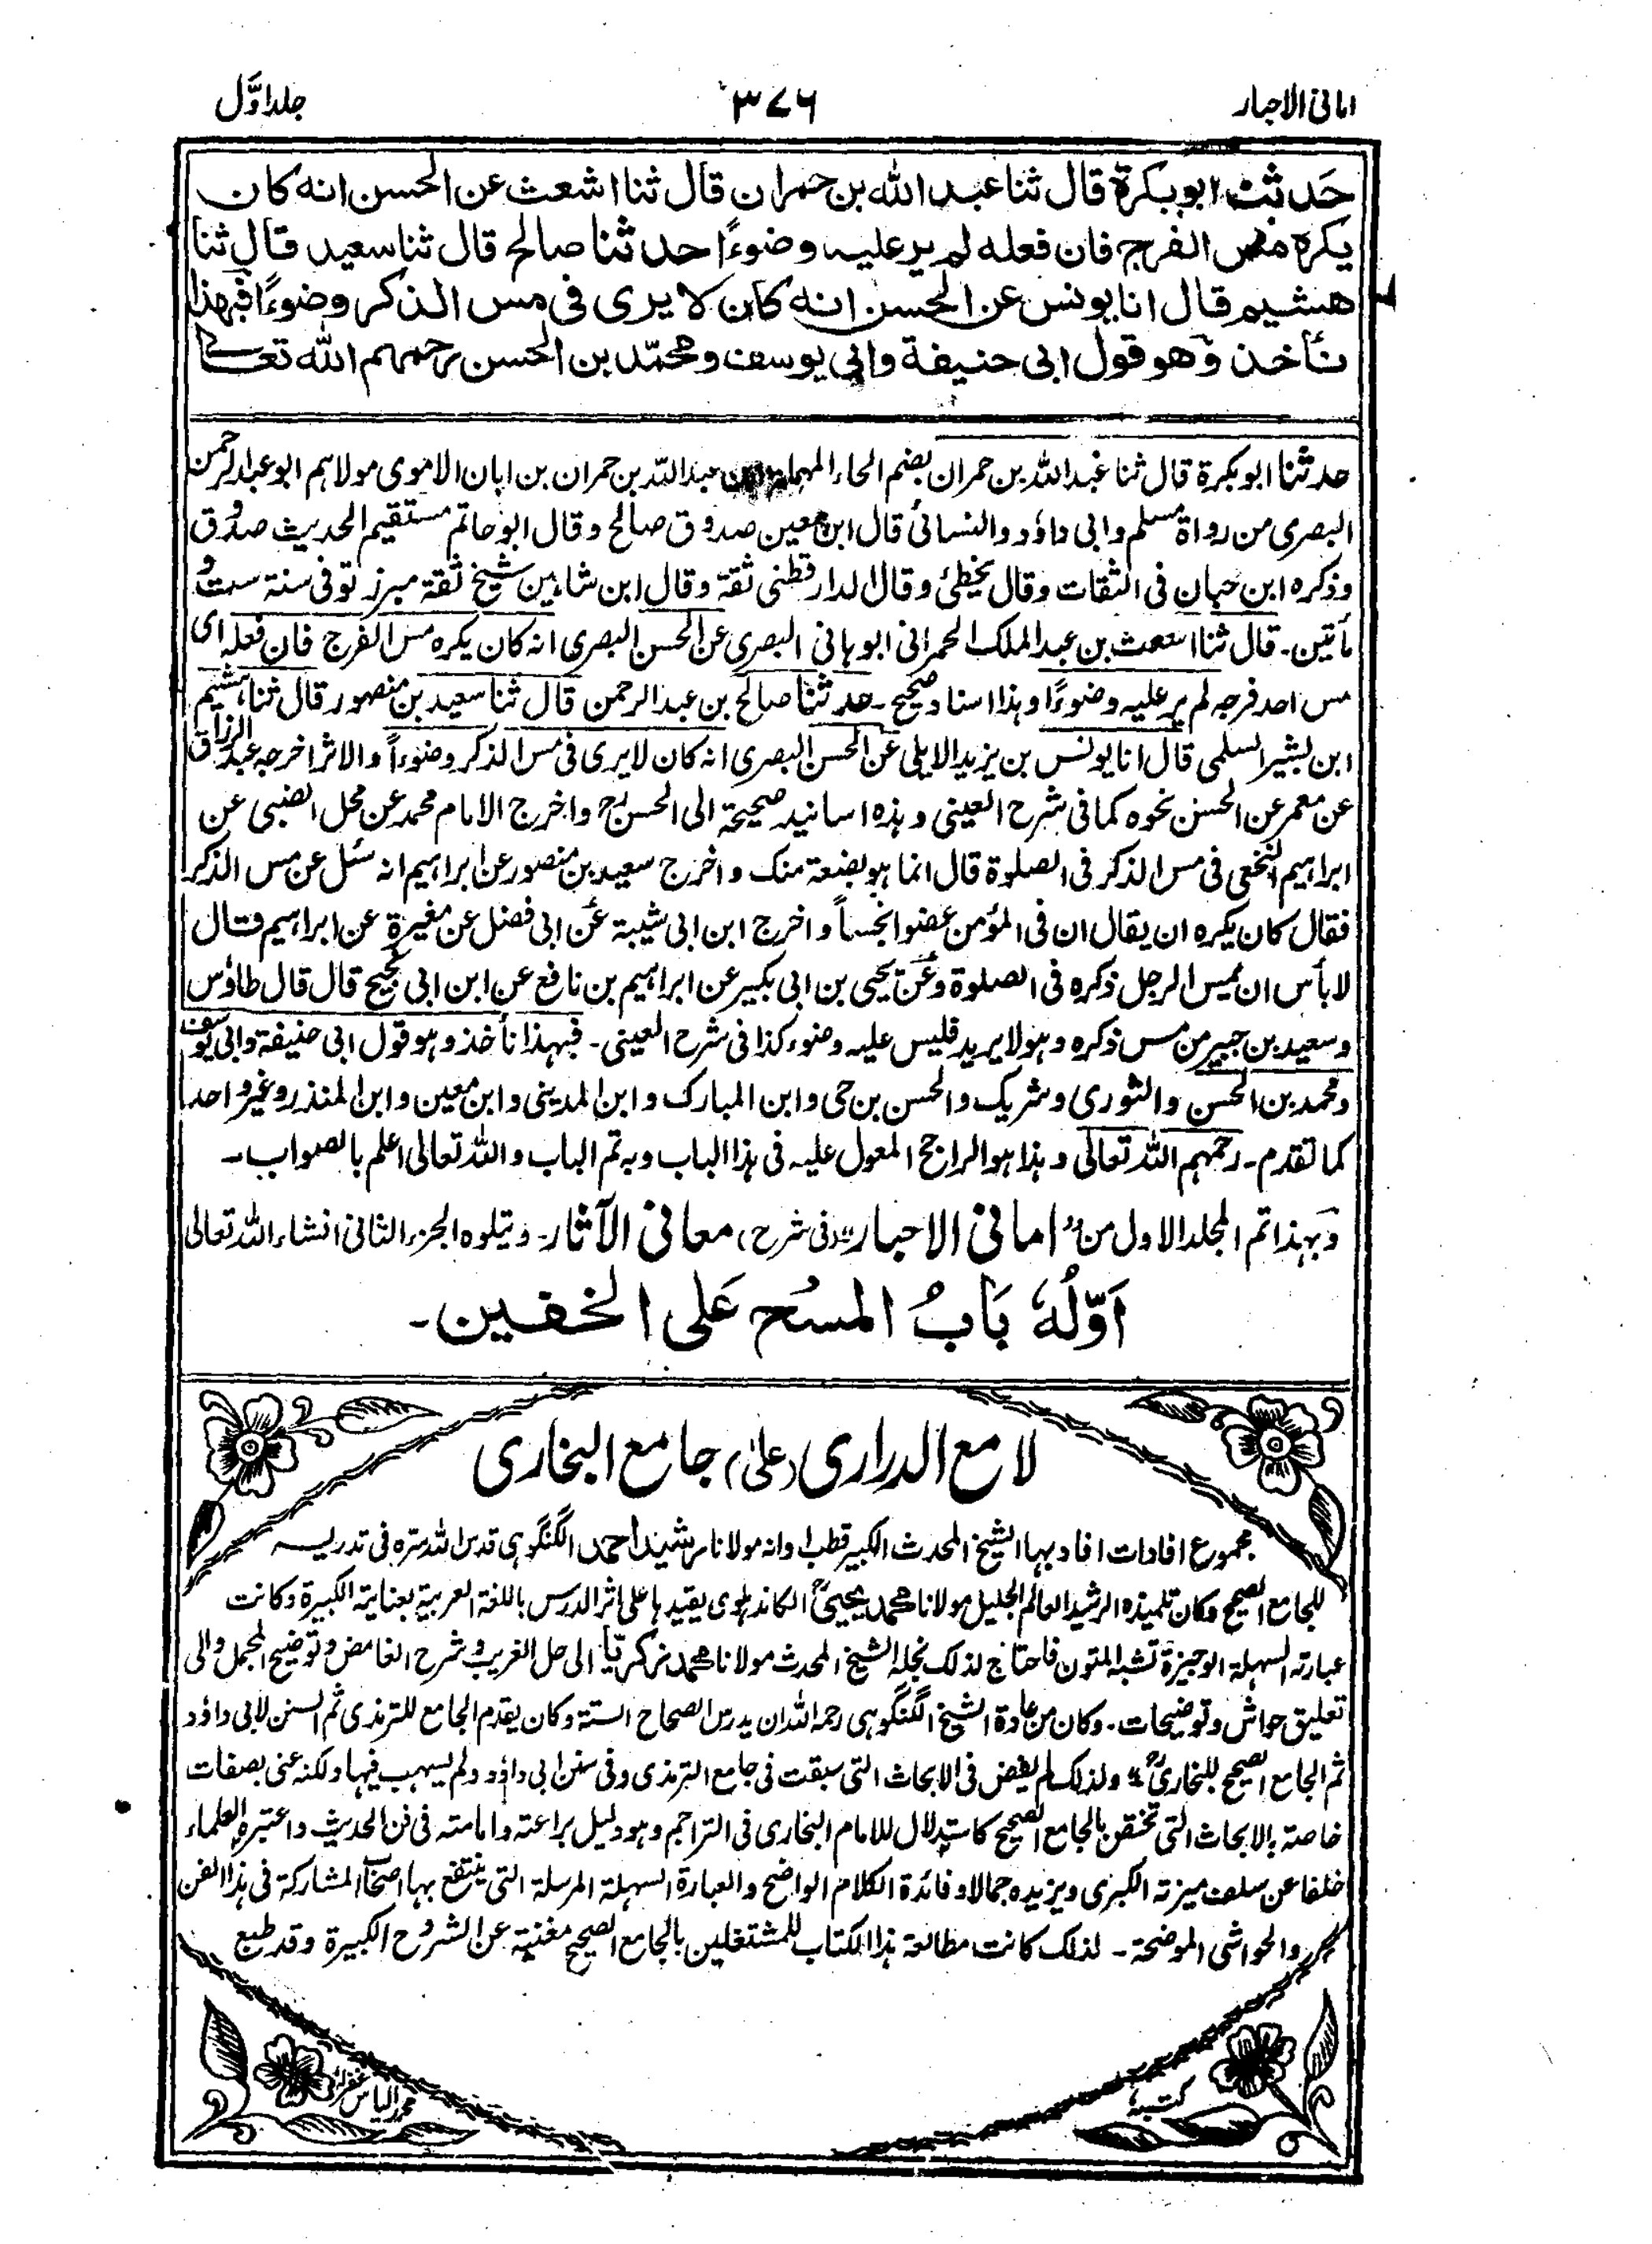 امانی الاحبار ٣٧٦ جلد اوّل
حدثنا ابوبكرة قال ثنا عبد الله بن حمران قال ثنا اشعث عن الحسن انه كان
يكره مس الفرج فان فعله لم ير عليه وضوءًا حدثنا صالح قال ثنا سعيد قال ثنا
هشيم قال انا يونس عن الحسن انه كان لا يرى فى مس الذكر وضوءًا فبهذا
نأخذ وهو قول ابى حنيفة وابى يوسف ومحمّد بن الحسن رحمهم الله تعالےٰ
حدثنا ابوبكرة قال ثنا عبد الله بن حمران بضم الحاء المهملة عبد الله بن حمران بن ابان الاموى مولاهم ابو عبد الرحمن
البصرى من رواة مسلم وابى داؤد والنسائى قال ابن معين صدوق صالح وقال ابو حاتم مستقيم الحديث صدوق
وذكره ابن حبان فى الثقات وقال يخطئ وقال الدارقطنى ثقة وقال ابن شاہين شيخ ثقة مبرز توفى سنة ست و
مأتين۔ قال ثنا اشعث بن عبد الملك الحمرانى ابو ہانى البصرى عن الحسن البصرى انہ كان يكره مس الفرج فان فعلہ اى
مس احد فرجہ لم ير عليہ وضوءًا وہذا اسناد صحيح۔ حدثنا صالح بن عبد الرحمن قال ثنا سعيد بن منصور قال ثنا ہشيم
ابن بشير السلمى قال انا يونس بن يزيد الايلى عن الحسن البصرى انہ كان لا يرى فى مس الذكر وضوءاً والاثر اخرجہ عبد الرزاق
عن معمر عن الحسن نحوه كما فى شرح العينى وہذه اسانيد صحيحة الى الحسنؒ واخرج الامام محمد عن محل الضبى عن
ابراہيم النخعى فى مس الذكر فى الصلوة قال انما ہو بضعة منك واخرج سعيد بن منصور عن ابراہيم انہ سئل عن مس الذكر
فقال كان يكره ان يقال ان فى المؤمن عضوا نجساً واخرج ابن ابى شيبة عن ابى فضل عن مغيرة عن ابراہيم قال
لا بأس ان يمس الرجل ذكره فى الصلوة وعن يحيى بن ابى بكير عن ابراہيم بن نافع عن ابن ابى نجيح قال قال طاؤس
وسعيد بن جبير من مس ذكره وہو لا يريد فليس عليہ وضوء كذا فى شرح العينى۔ فبہذا نأخذ وہو قول ابى حنيفة وابى يوسف
ومحمد بن الحسن والثورى وشريك والحسن بن حى وابن المبارك وابن المدينى وابن معين وابن المنذر وغير واحد
كما تقدم۔ رحمہم اللہ تعالى وہذا ہو الراجح المعول عليہ فى ہذا الباب وبہ تم الباب واللہ تعالى اعلم بالصواب۔
وبہذا تم المجلد الاول من "امانى الاحبار" (فى شرح) معانى الآثار۔ ويتلوه الجزء الثانى انشاء اللہ تعالى
اَوّلُهٗ بَابُ المسُح عَلى الخفين۔
لامع الدرارى (علىٰ) جامع البخارى
مجموع افادات افاد بہا الشيخ المحدث الكبير قطب اوانہ مولانا رشيد احمد الگنگوہى قدس اللہ سره فى تدريسہ
للجامع الصحيح وكان تلميذه الرشيد العالم الجليل مولانا محمد يحيىٰؒ الكاندہلوى يقيدہا على اثر الدرس باللغة العربية بعناية الكبيرة وكانت
عبارتہ السہلة الوجيزة تشبہ المتون فاحتاج لذلك نجلہ الشيخ المحدث مولانا محمد زكريّا الى حل الغريب وشرح الغامض وتوضيح المجمل والى
تعليق حواش وتوضيحات۔ وكان من عادة الشيخ الگنگوہى رحمہ اللہ ان يدرس الصحاح الستة وكان يقدم الجامع للترمذى ثم السنن لابى داؤد
ثم الجامع الصحيح للبخارىؒ" ولذلك لم يفض فى الابحاث التى سبقت فى جامع الترمذى وفى سنن ابى داؤد ولم يسہب فيہا ولكنہ عنى بصفات
خاصة بالابحاث التى تختص بالجامع الصحيح كاستدلال للامام البخارى فى التراجم وہو دليل براعتہ وامامتہ فى فن الحديث واعتبره العلماء
خلفا عن سلف ميزتہ الكبرى ويزيده جمالا وفائدة الكلام الواضح والعبارة السہلة المرسلة التى ينتفع بہا اصحاب المشاركة فى ہذا الفن
والحواشى الموضحة۔ لذلك كانت مطالعة ہذا الكتاب للمشتغلين بالجامع الصحيح مغنية عن الشروح الكبيرة وقد طبع
كتبہٗ محمد الياس غفرلہ